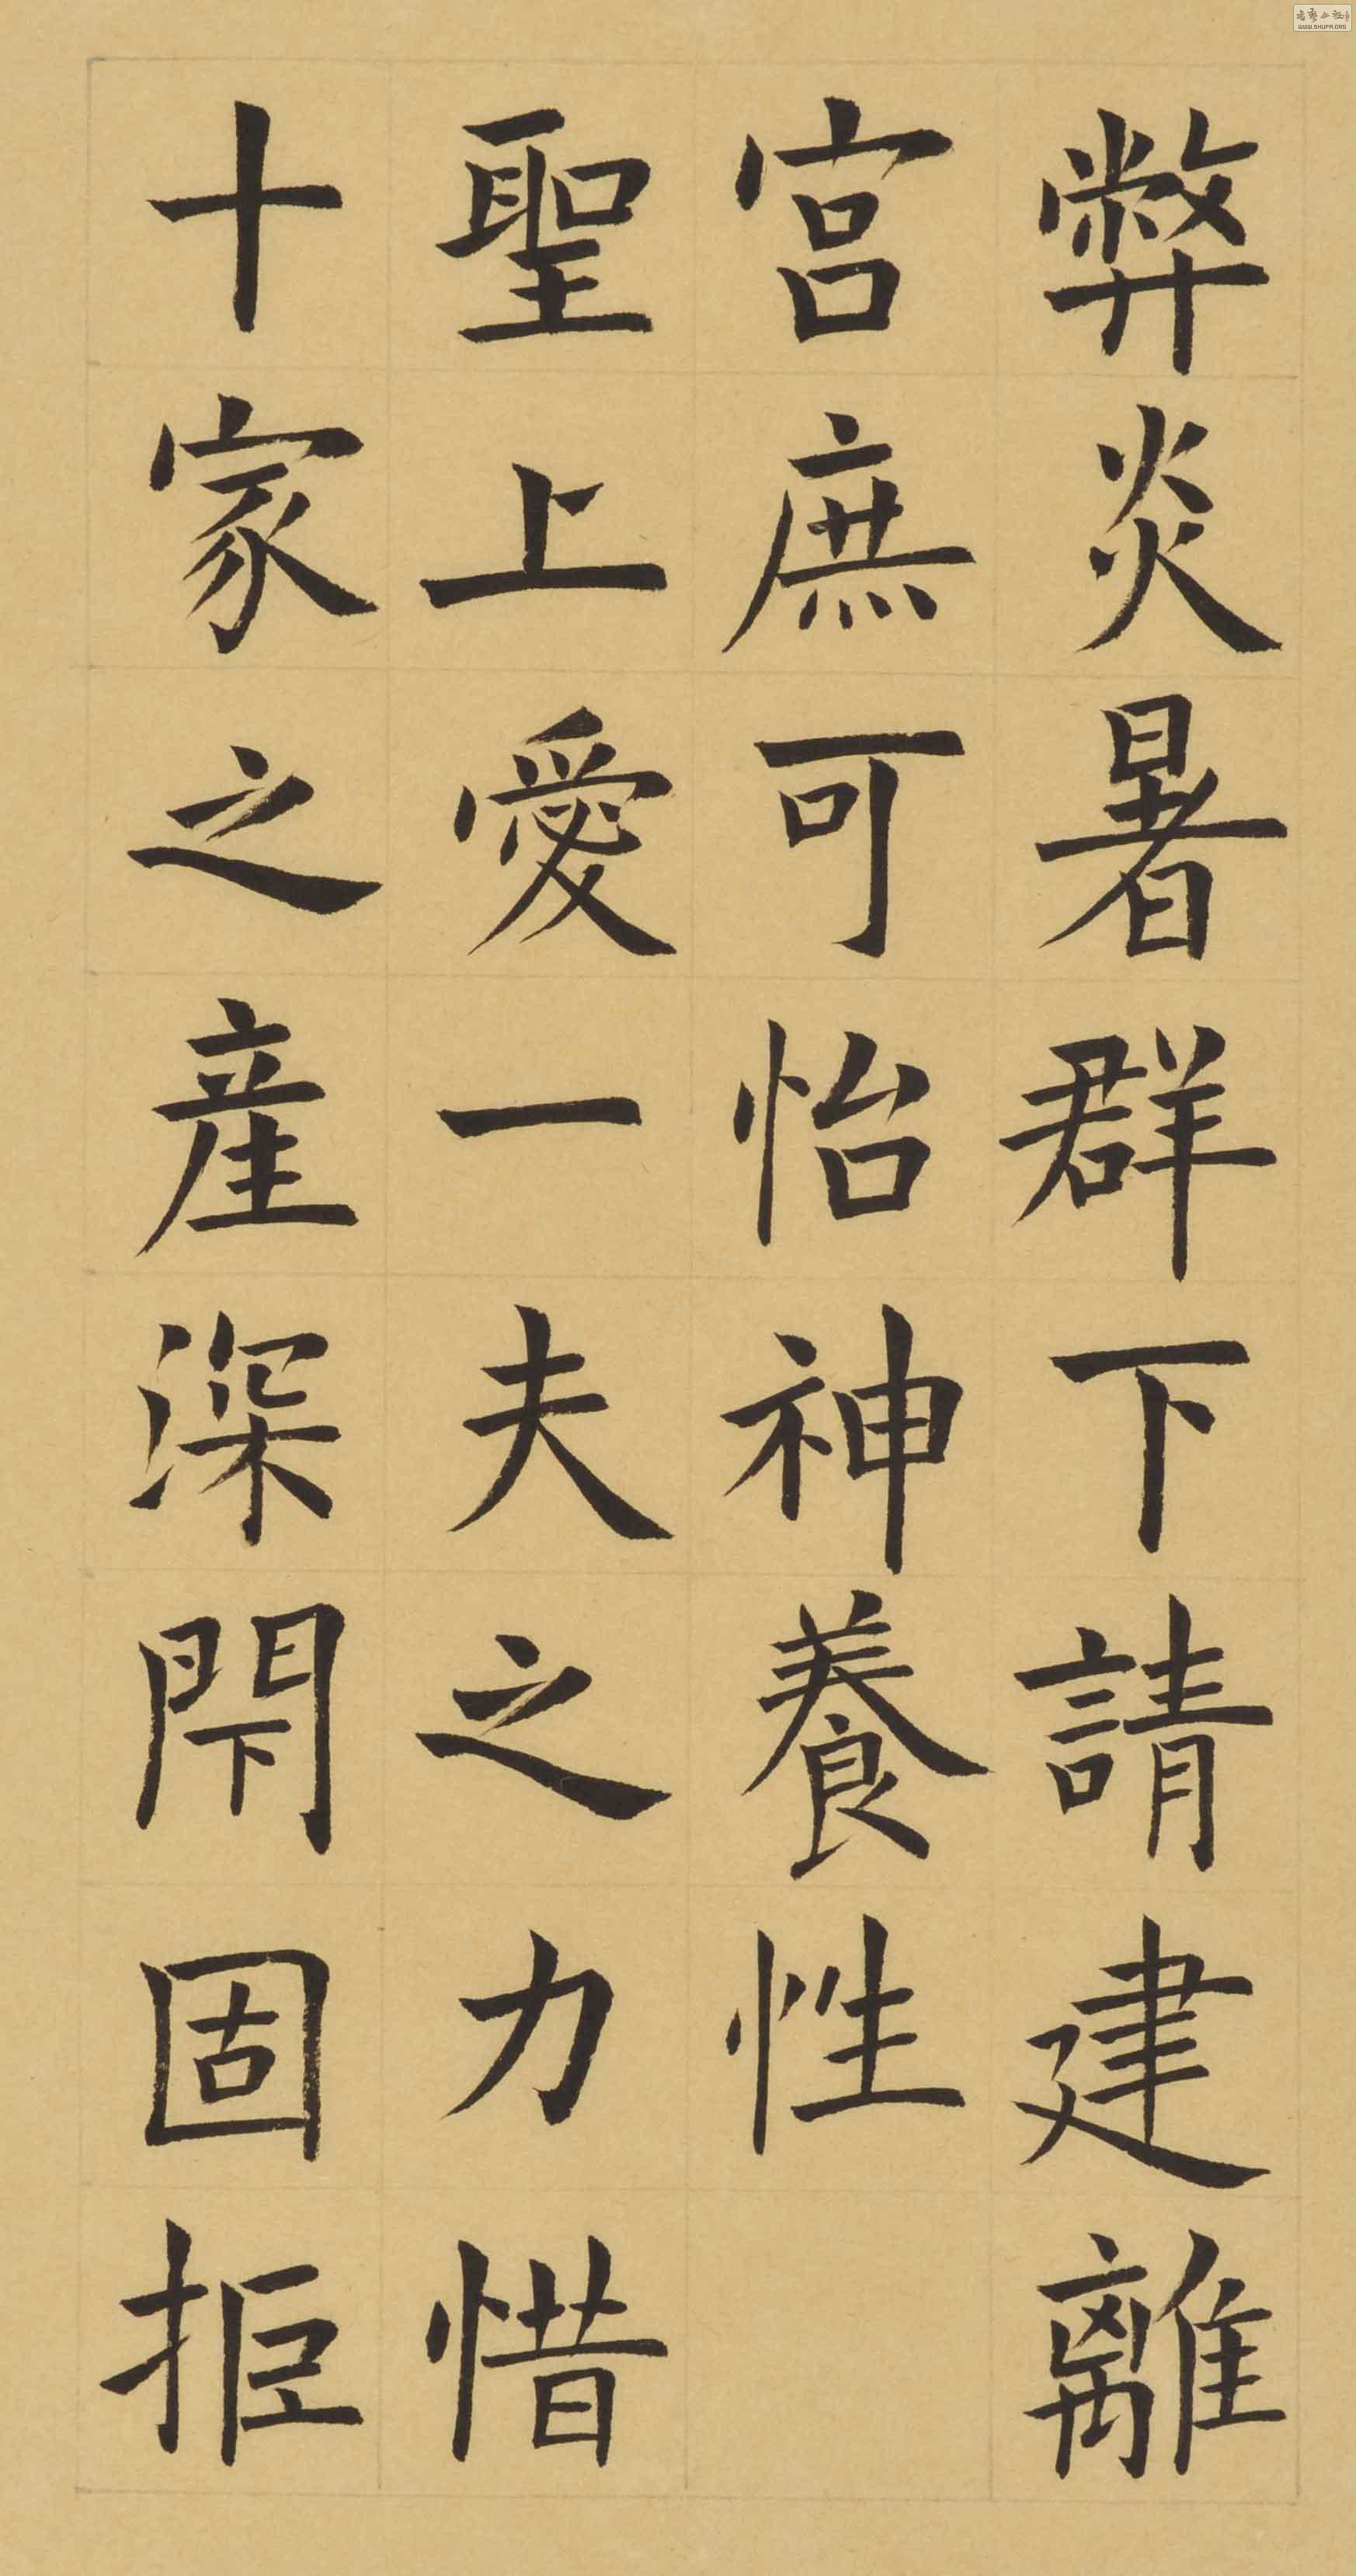 弊炎暑群下請建離
宮庶可怡神養性
聖上愛一夫之力惜
十家之產深閇固拒
WWW.SHUFA.ORG